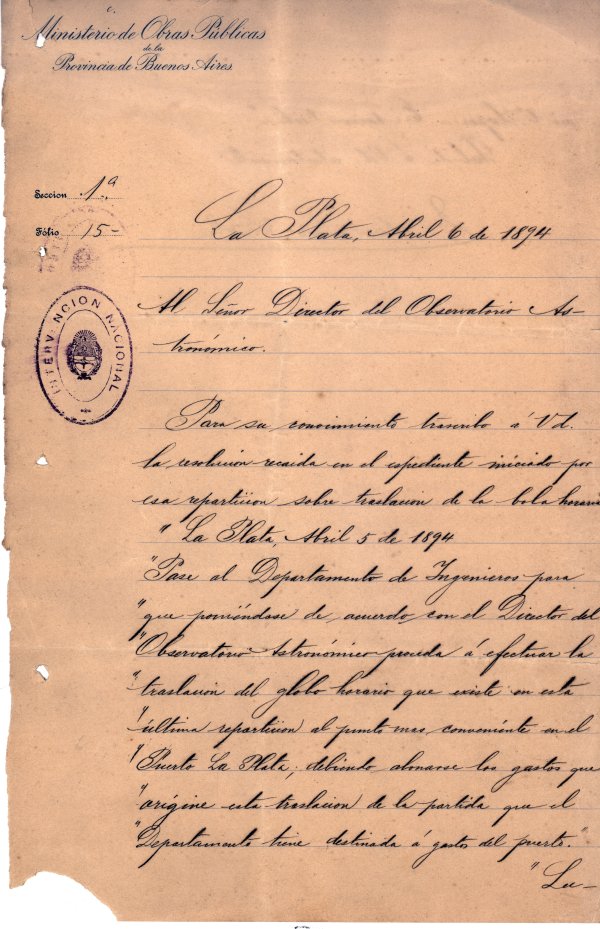 Ministerio de Obras Públicas
de la
Provincia de Buenos Aires
Seccion 1ª
Fólio 15-
INTERVENCION NACIONAL
La Plata, Abril 6 de 1894
Al Señor Director del Observatorio As-
tronómico.
Para su conocimiento trascribo á Vd.
la resolución recaida en el espediente iniciado por
esa reparticion sobre traslacion de la bola horaria
" La Plata, Abril 5 de 1894
"Pase al Departamento de Ingenieros para
"que poniéndose de acuerdo con el Director del
"Observatorio Astronómico proceda á efectuar la
"traslacion del globo horario que existe en esta
"última reparticion al punto mas conveniente en el
"Puerto La Plata; debiendo abonarse los gastos que
"origine esta traslacion de la partida que el
"Departamento tiene destinada á gastos del puerto."
"Lu-